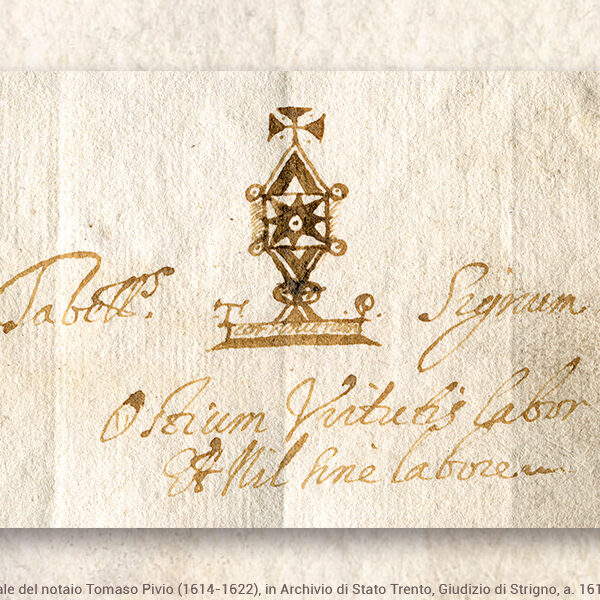 Tabell.s Signum
T. P.
Ostium Virtutis labor
Et Nil sine labore
ale del notaio Tomaso Pivio (1614-1622), in Archivio di Stato Trento, Giudizio di Strigno, a. 161